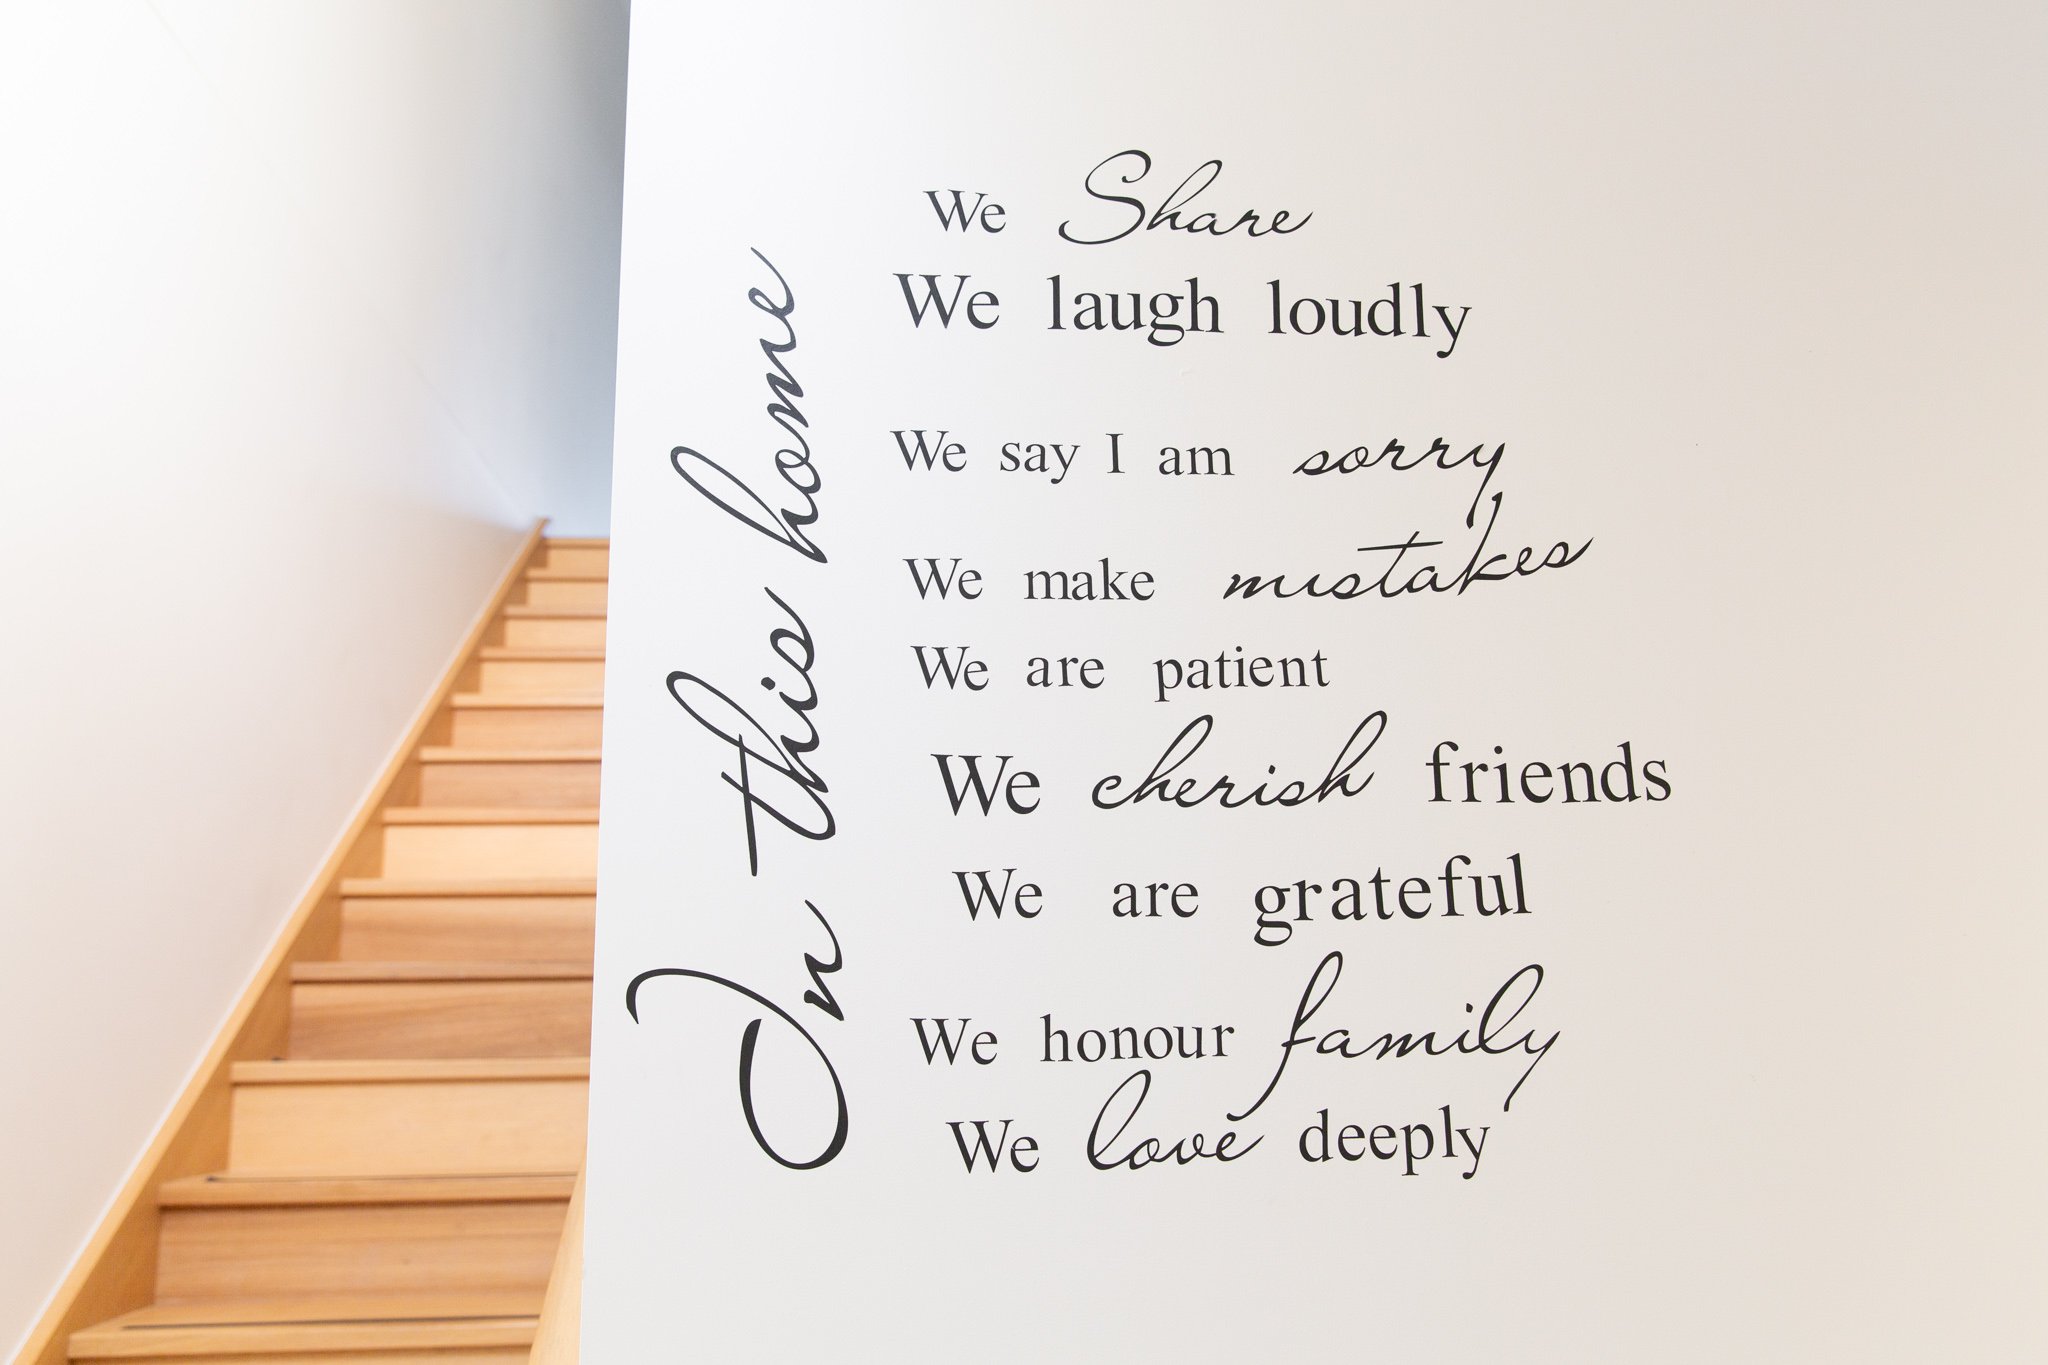 In this home
We Share
We laugh loudly
We say I am sorry
We make mistakes
We are patient
We cherish friends
We are grateful
We honour family
We love deeply